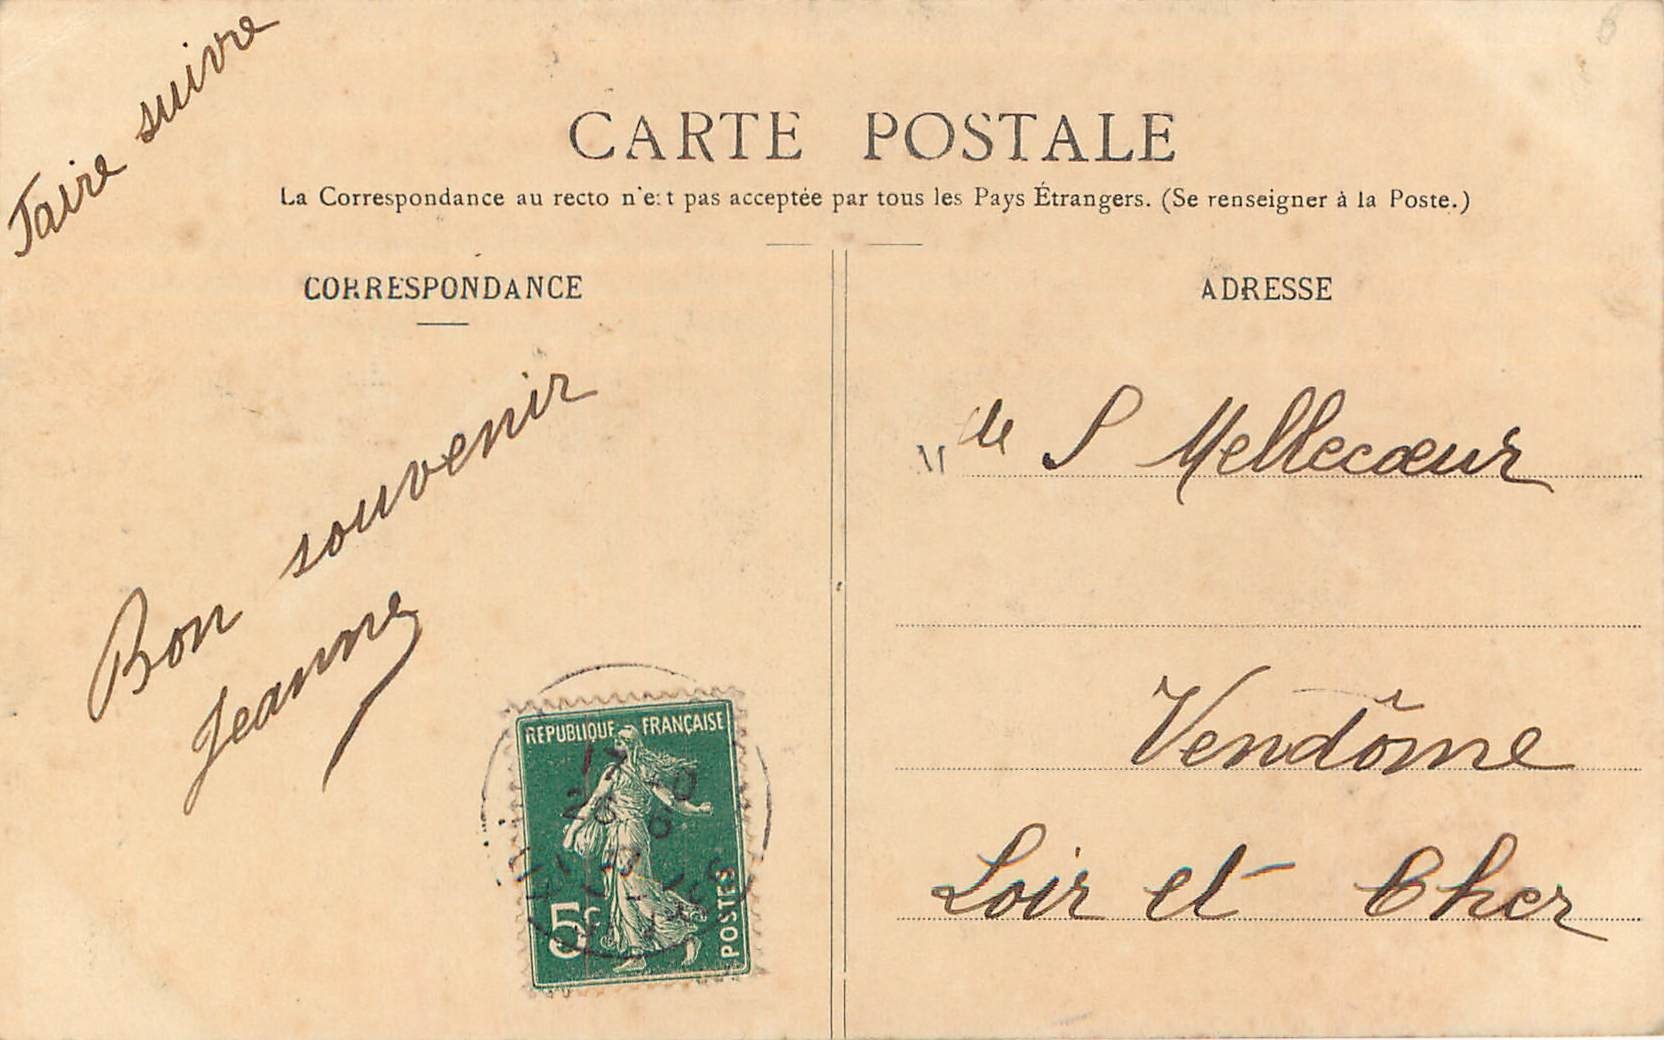 Faire suivre
CARTE POSTALE
La Correspondance au recto n'est pas acceptée par tous les Pays Étrangers. (Se renseigner à la Poste.)
CORRESPONDANCE
Bon souvenir
Jeanne
REPUBLIQUE FRANÇAISE
5c
POSTES
ADRESSE
de S Mellecœur
Vendôme
Loir et Cher